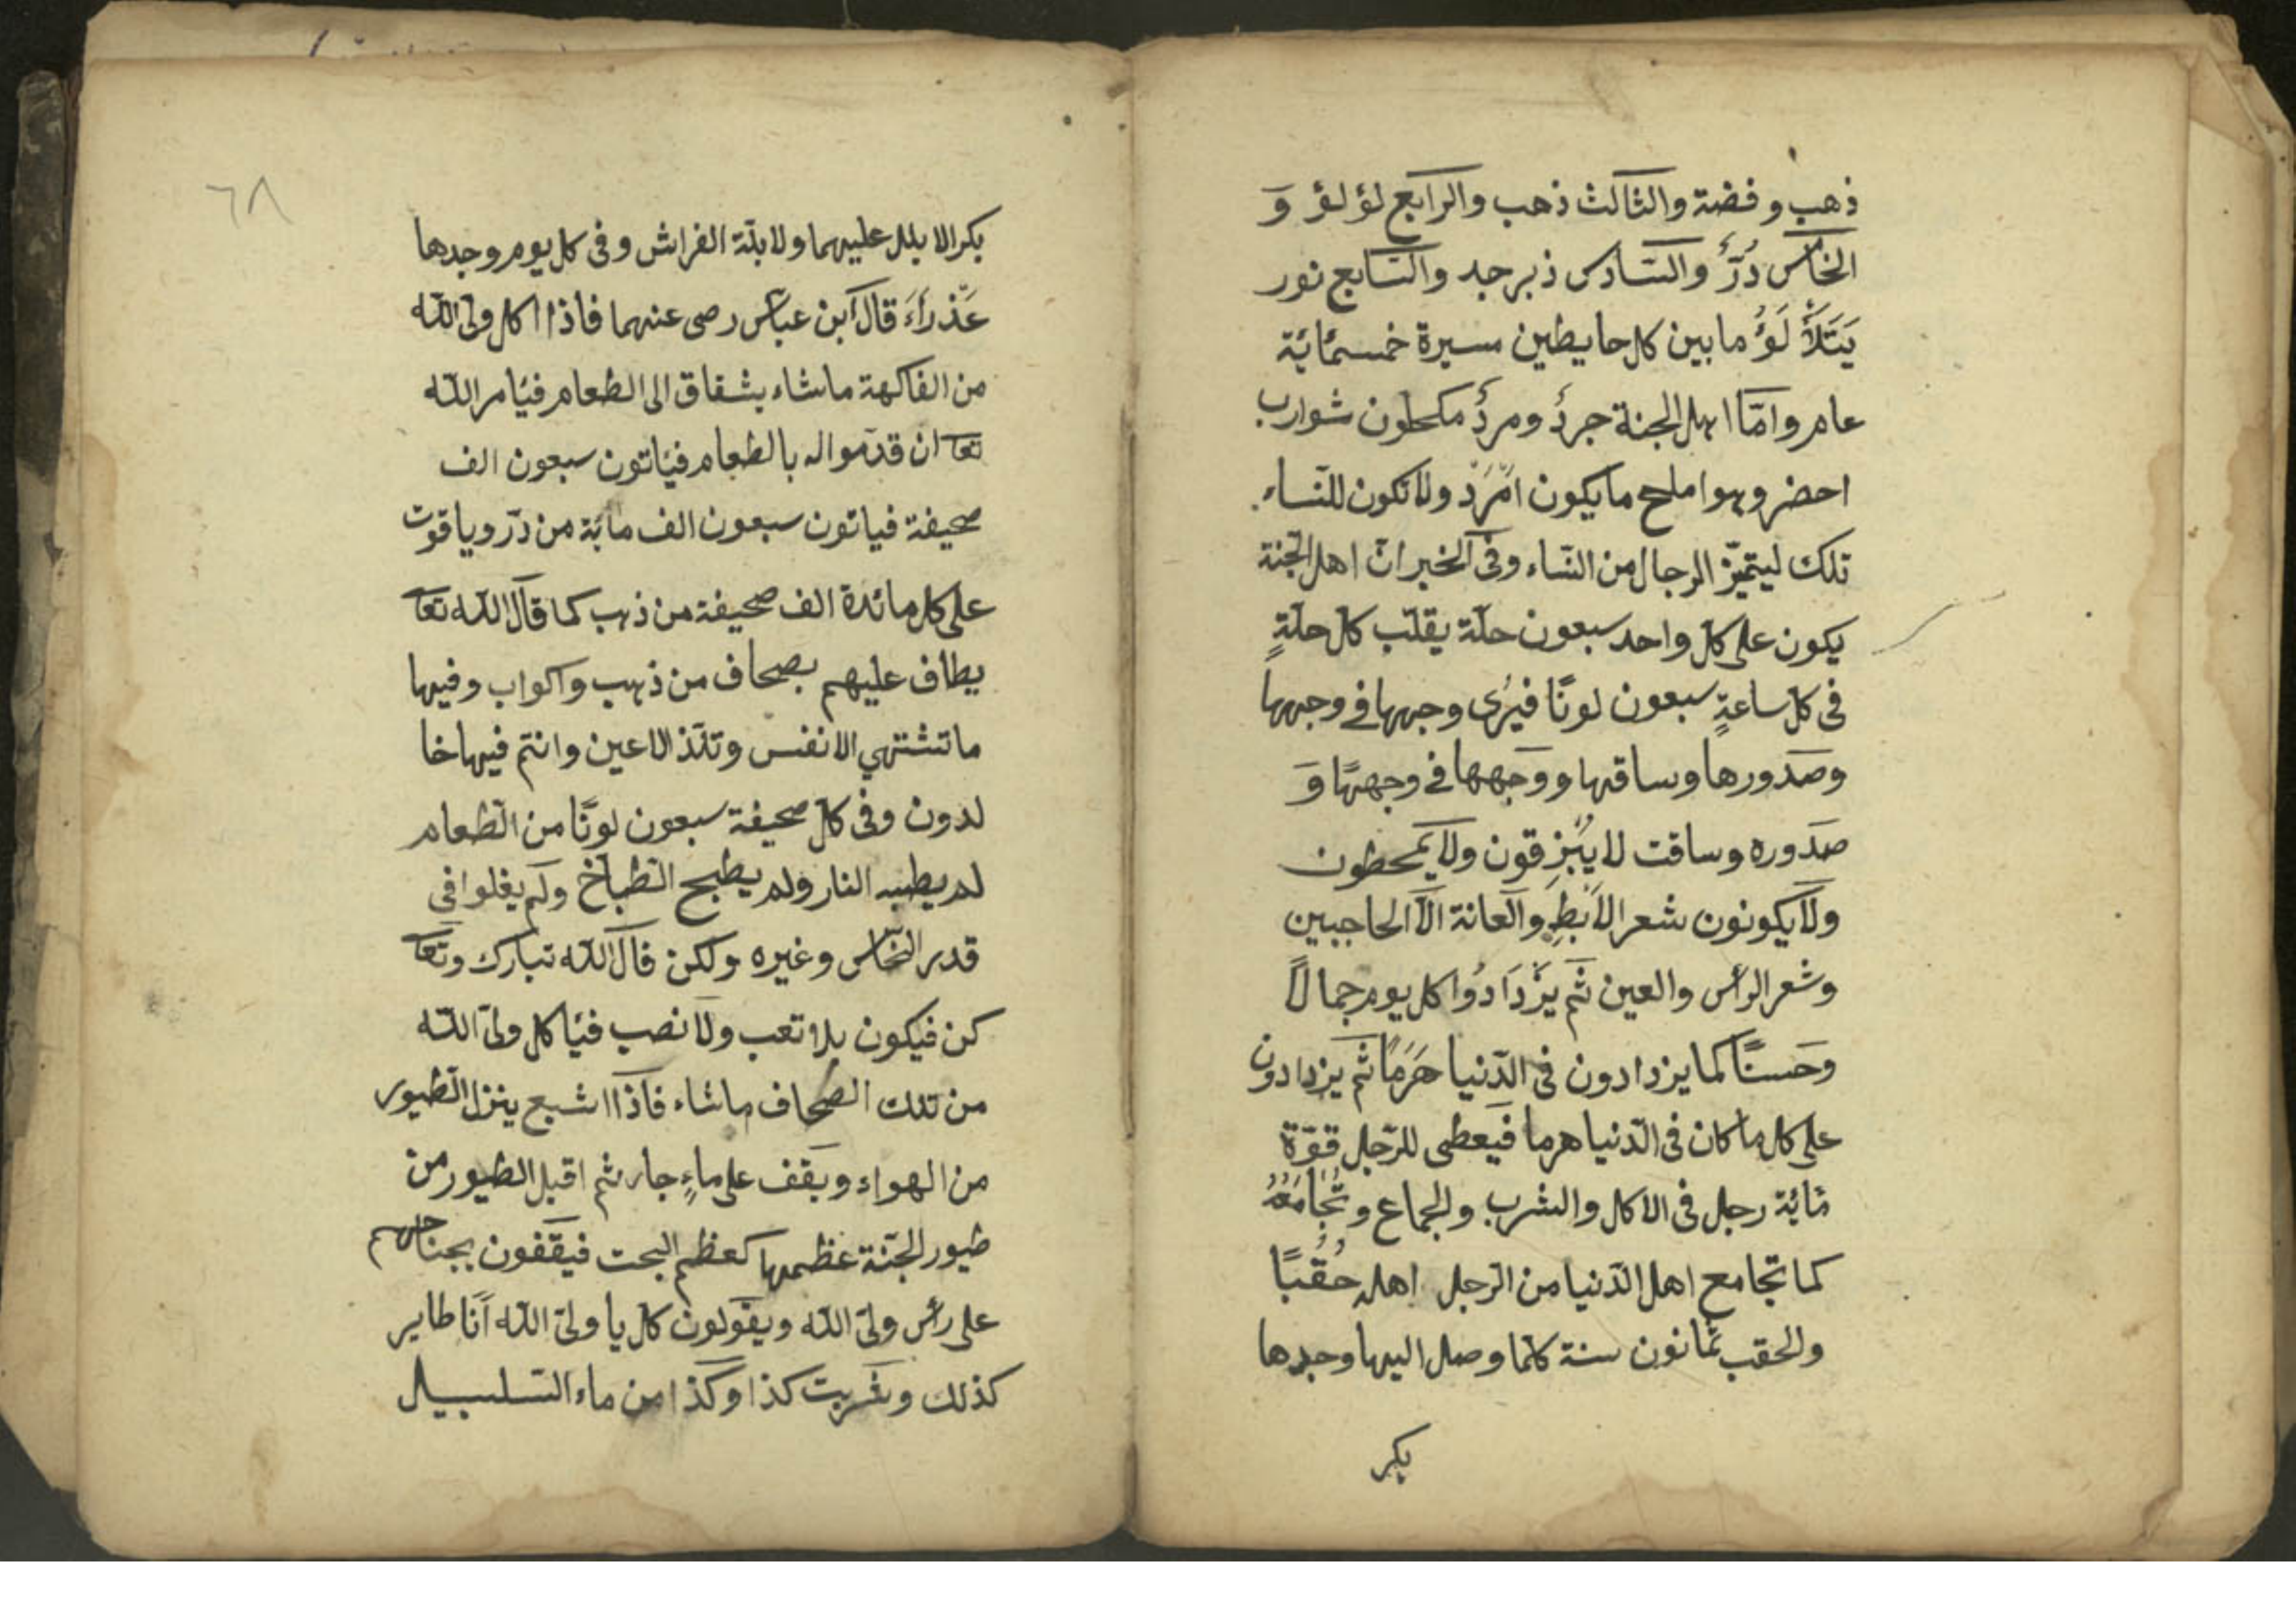 ذهب وفضة والثالث ذهب والرابع لؤلؤ وَ
الخامس دُرٌّ والسّادس ذبرجد والسّابع نور
يَتَلَأْلَؤُ مابين كل حايطين مسيرة خمسمائة
عام وامّا اهل الجنة جردٌ ومردٌ مكحلون شوارب
احضر وهو املح مايكون امْرَدْ ولا تكون للنّساء
تلك ليتميّز الرجال من النّساء وفى الخبر انّ اهل الجّنة
يكون على كل واحد سبعون حلّة يقلّب كل حلّةٍ
فى كل ساعةٍ سبعون لونًا فيَرى وجهها في وجهها
وصَدورها وساقها ووَجهها في وجههَا وَ
صَدوره وساقت لا يَبْزِقون ولا يمخطون
ولا يكونون شعر الاَبْطِ والعانة الّا الحاجبين
وشعر الرأس والعين ثم يَزْدَادُوا كل يوم جمالاً
وحَسنًا كما يزدادون فى الدّنيا هَرَمًا ثم يزدادون
على كل ما كان فى الدّنيا هرما فيعطى للرّجل قوّة
مائة رجل فى الاكل والشرب والجماع وتُجَامَعُهُ
كما تجامع اهل الدّنيا من الرّجل اهله حُقُبًا
والحقب ثمانون سنة كلّما وصل اليها وجدها
بكر
٦٨
بكرا لا بلل عليهما ولا بلّة الفراش وفى كل يوم وجدها
عَذراءَ قال ابن عبّاس رضى عنهما فاذا اكل ولىّ اللّه
من الفاكهة ماشاء يشقاق الى الطعام فيأمر اللّه
تعا ان قدّموا له بالطعام فيأتون سبعون الف
صحيفة فياتون سبعون الف مائة من درّ وياقوت
على كل مائدة الف صحيفة من ذهب كما قال اللّه تعا
يطاف عليهم بصحاف من ذهب واكواب وفيها
ماتشتهي الانفس وتلذّ الاعين وانتم فيها خا
لدون وفى كلّ صحيفة سبعون لونًا من الطعام
لم يطبه النار ولم يطبح الطّباخ ولم يغلوا في
قدر النّحاس وغيره ولكن قال اللّه تبارك وتعا
كن فيكون بلا تعب ولا نصب فيأكل ولىّ اللّه
من تلك الصّحاف ماشاء فاذا اشبع ينزل الطّيور
من الهواء ويقف على ماءٍ جار ثم اقبل الطيور من
طيور الجنّة عظمها كعظم البحت فيقفون بجناحهم
على رأس ولىّ اللّه ويقولون كل يا ولىّ اللّه أنا طاير
كذلك وشربت كذا وكذا من ماء السّلسبيل